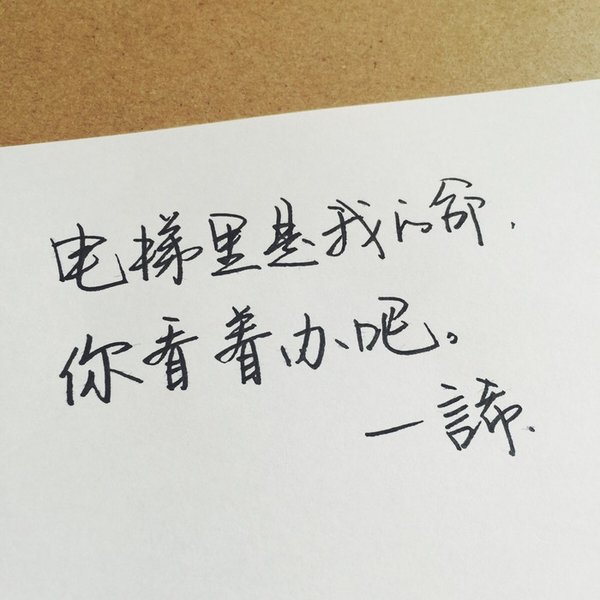 电梯里是我的命.
你看着办吧。
一諦.